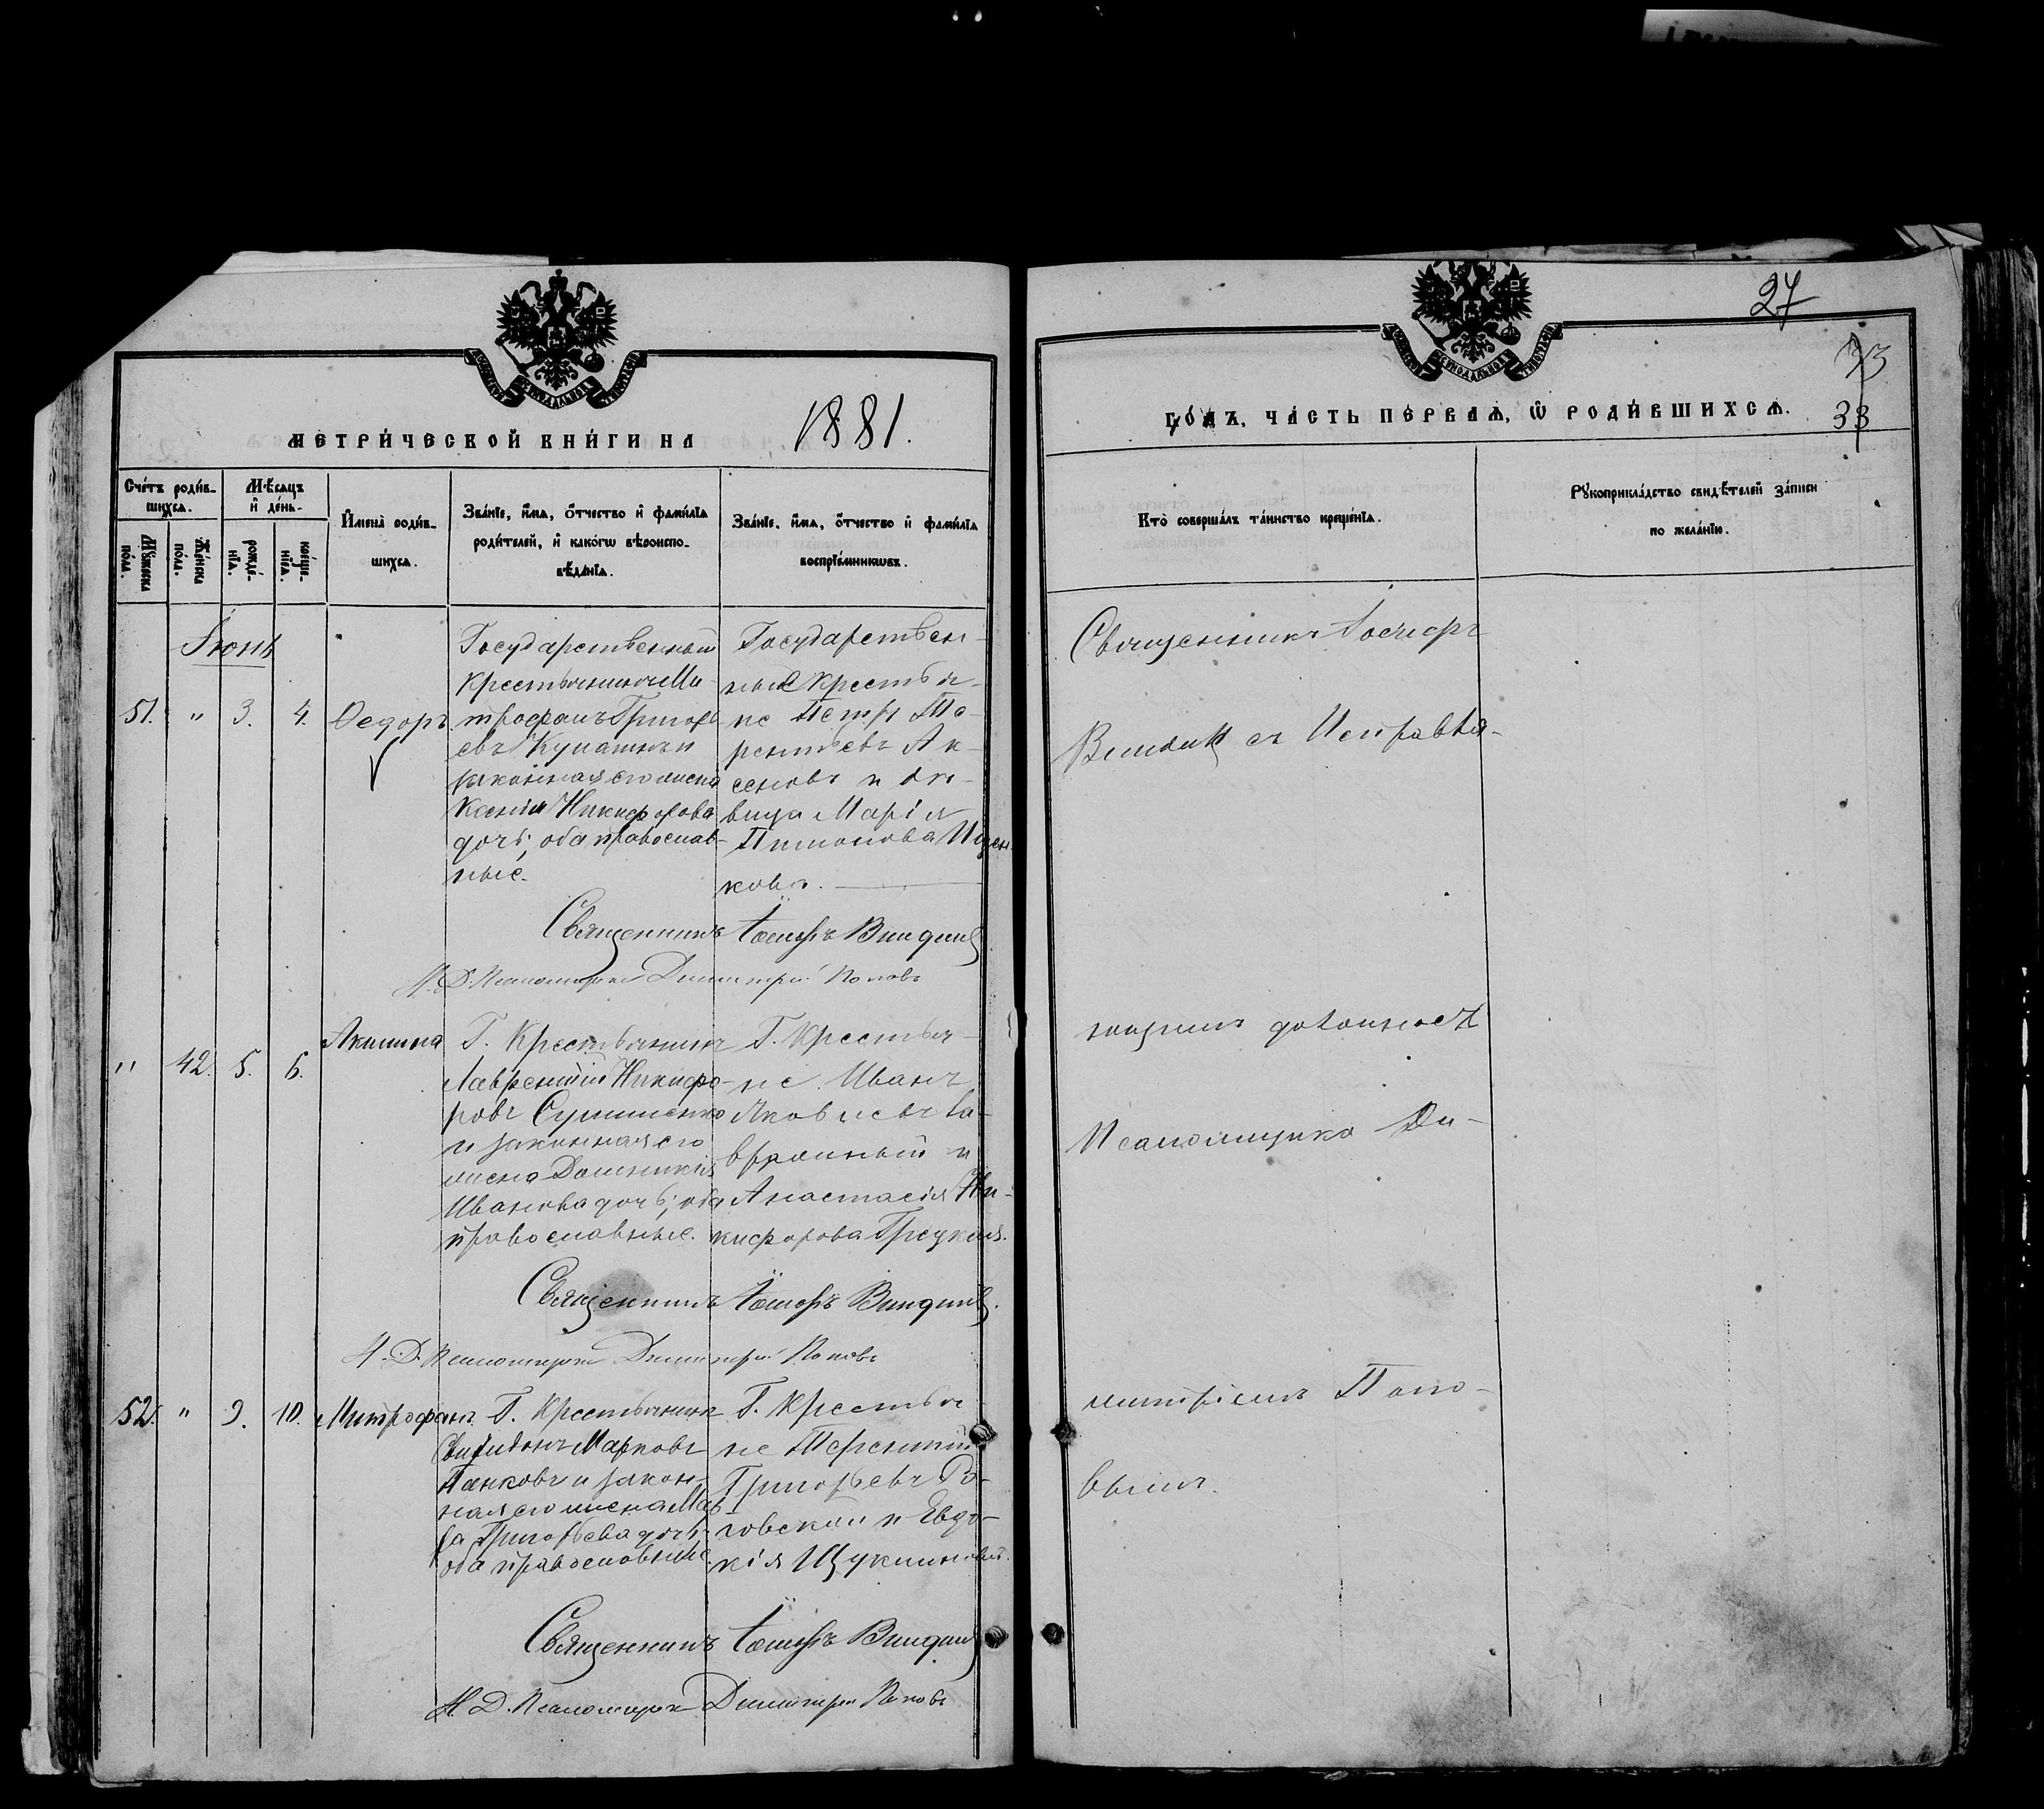 27
33
МЕТРИЧЕСКОЙ КНИГИ НА 1881.
Счетъ родив-
шихся.
Мѣсяцъ
и день.
Мужеска
пола.
Женска
пола.
рожде-
нія.
креще-
нія.
Имена родив-
шихся.
Званіе, имя, отчество и фамилія
родителей, и какогѡ вѣроиспо-
вѣданія.
Званіе, имя, отчество и фамилія
воспріемниковъ.
Іюнь
51. " 3. 4. Ѳедоръ
Государственный
крестьянинъ Ми-
трофанъ Григорь
евъ и
законная его жена
Ксенія Никифорова
дочь; оба православ-
ные.
Государствен-
ные крестья-
не Петръ Те-
рентьевъ Ак-
сеновъ и дѣ-
вица Марія
кова.
Священникъ Іосифъ
И. Д. Псаломщика Димитрій Поповъ
" 42. 5. 6. Акилина
Г. Крестьянинъ
Лаврентій Никифо-
ровъ
и законная его
жена Домникія
Иванова дочь; оба
православные.
Г. Крестья-
не Иванъ
Яковлевъ Га-
врашный и
Анастасія Ни-
кифорова Грецкая.
Священникъ Іосифъ
И. Д. Псаломщика Димитрій Поповъ
52. " 9. 10. Митрофанъ
Г. Крестьянинъ
Марковъ
Панковъ и закон-
ная его жена Мав-
ра Григорьева дочь
оба православные.
Г. Крестья
не Терентій
Григорьевъ Ро-
говской и Евдо-
кія
Священникъ Іосифъ
И. Д. Псаломщика Димитрій Поповъ
ГОДЪ, ЧАСТЬ ПЕРВАЯ, Ѡ РОДИВШИХСЯ.
Кто совершалъ таинство крещенія.
Рукоприкладство свидѣтелей записи
по желанію.
Священникъ Іосифъ
съ Исправля-
ющимъ должность
Псаломщика Ди-
митріемъ Попо-
вымъ.